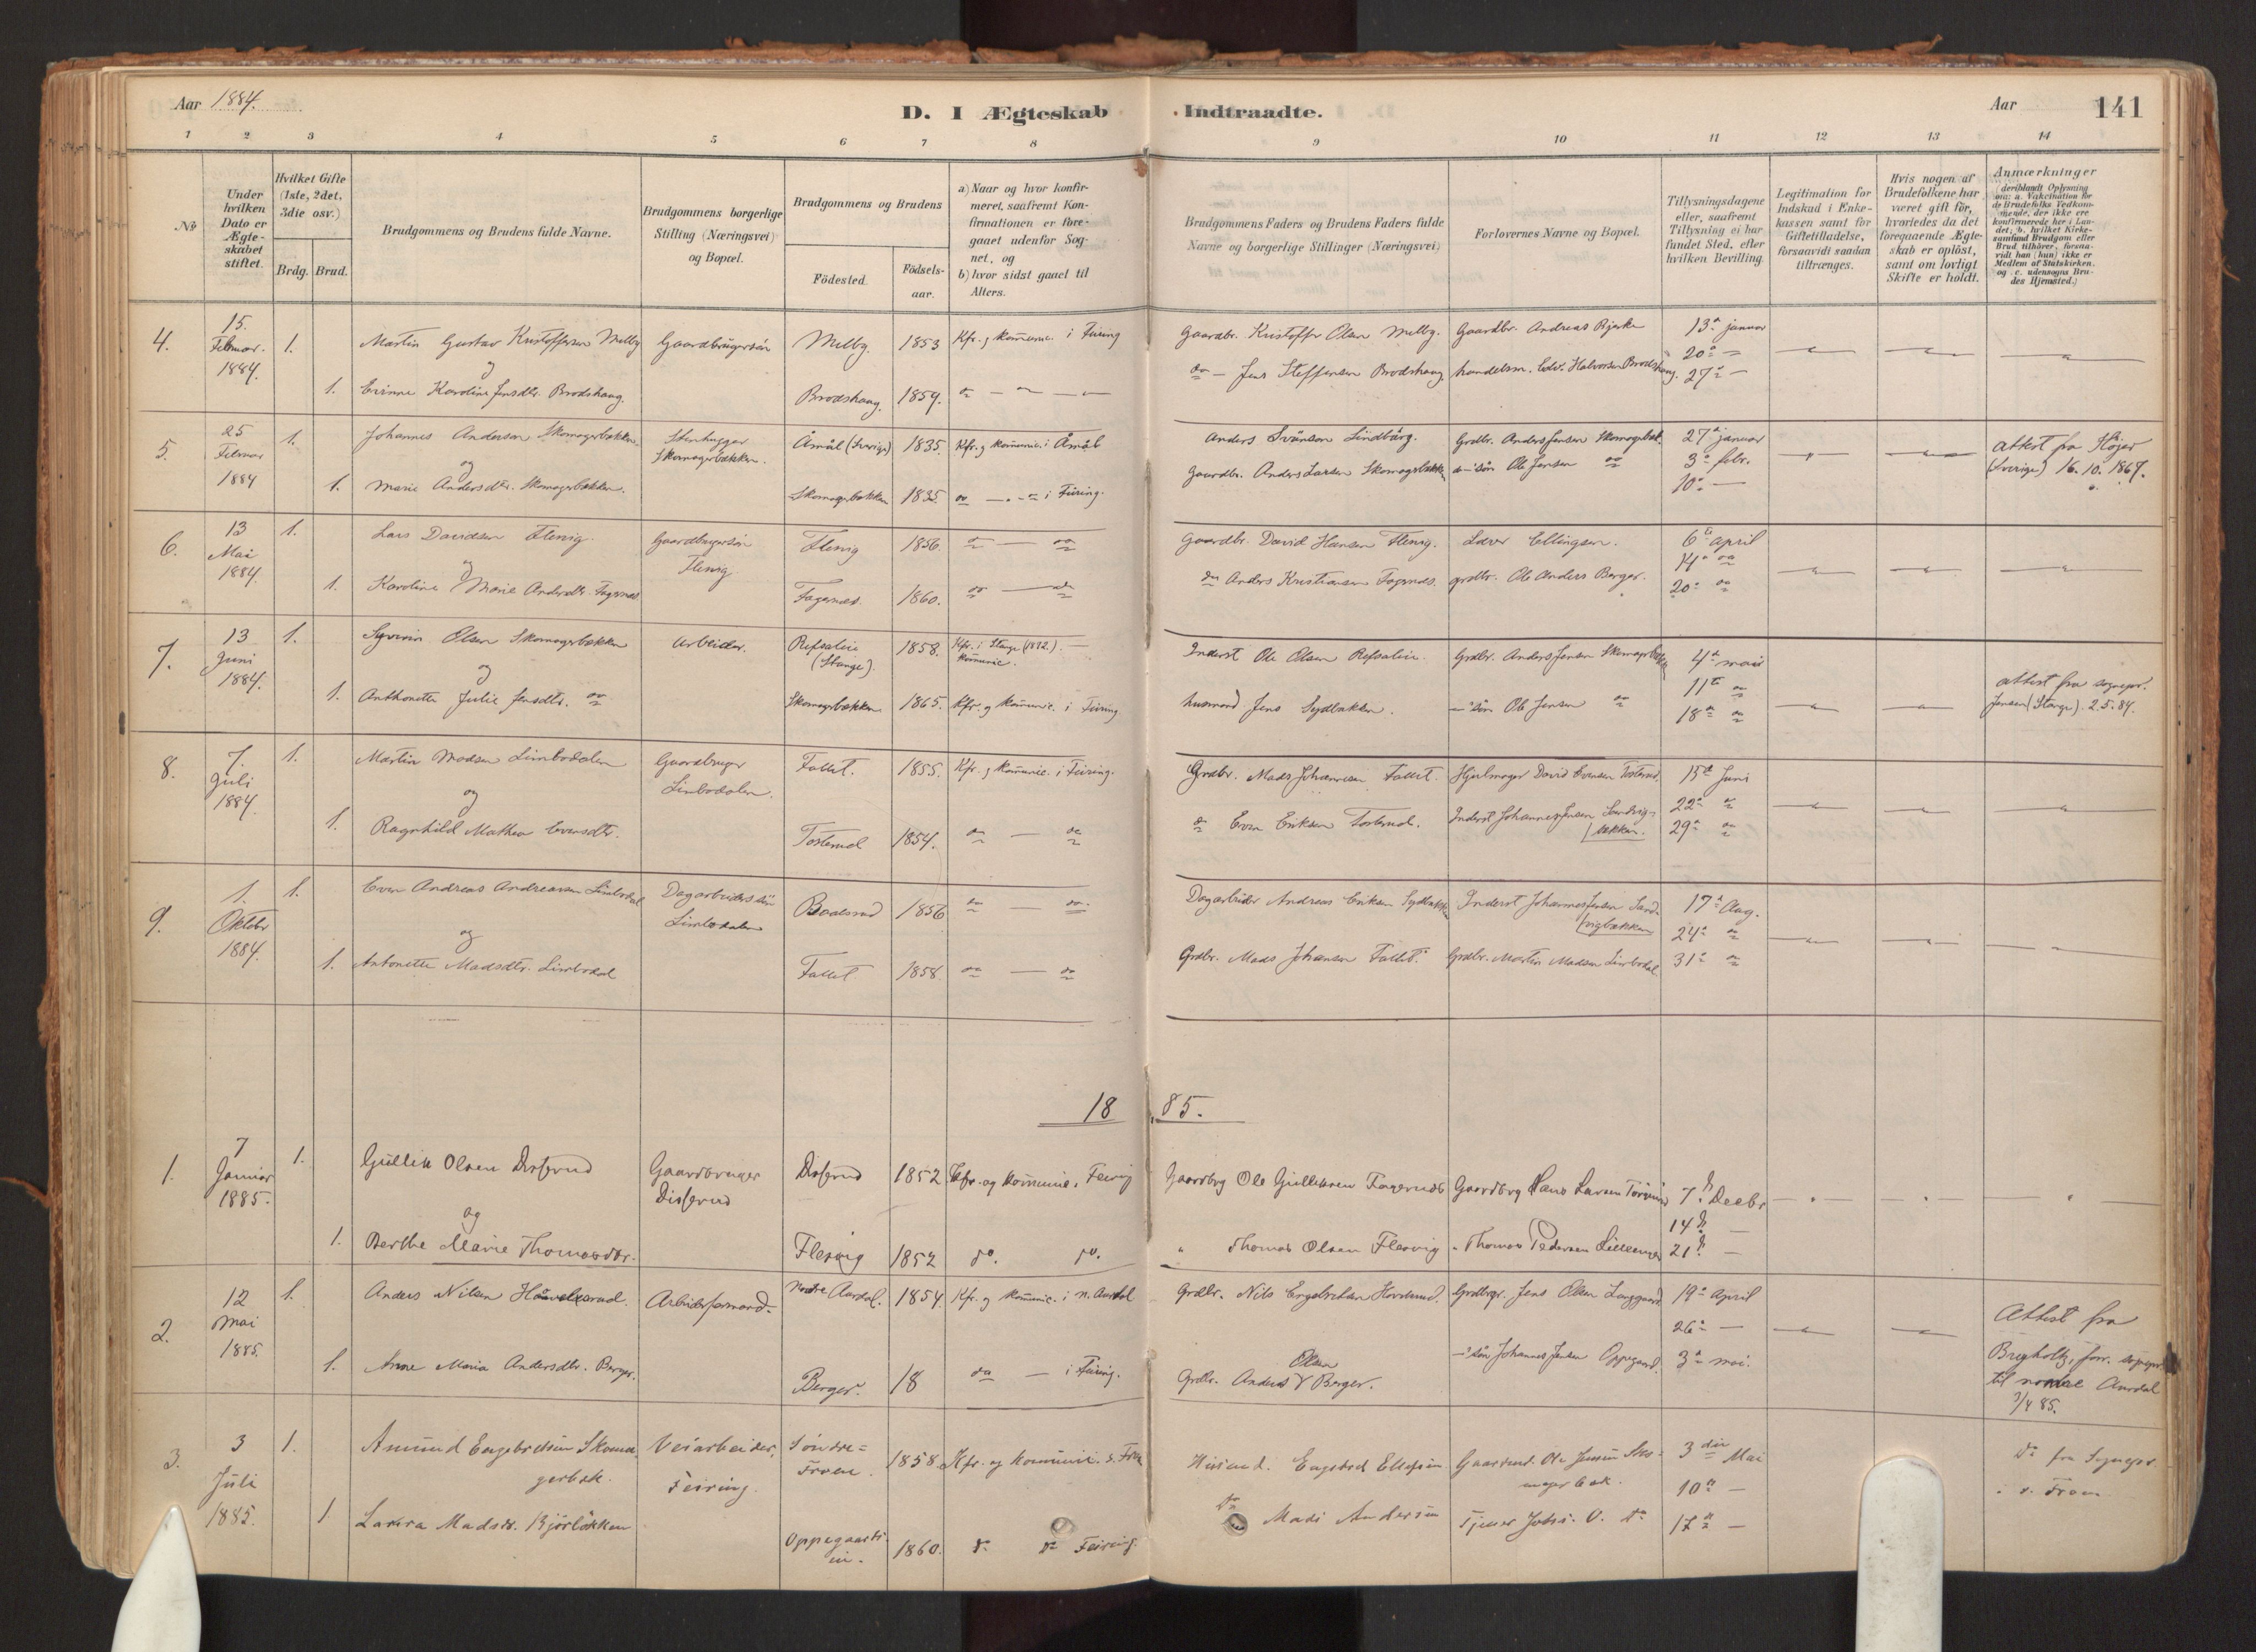 Aar 1884.
D. I Ægteskab Indtraadte.
Aar
141
1 2 3 4 5 6 7 8 9 10 11 12 13 14
No
Under hvilken Dato er Ægteskabet stiftet.
Hvilket Gifte (1ste, 2det, 3die osv.)
Brdg. Brud.
Brudgommens og Brudens fulde Navne.
Brudgommens borgerlige Stilling (Næringsvei) og Bopæl.
Brudgommens og Brudens
Födested.
Födselsaar.
a) Naar og hvor konfirmeret, saafremt Konfirmationen er foregaaet udenfor Sognet, og
b) hvor sidst gaaet til Alters.
Brudgommens Faders og Brudens Faders fulde Navne og borgerlige Stillinger (Næringsvei)
Forlovernes Navne og Bopæl.
Tillysningsdagene eller, saafremt Tillysning ei har fundet Sted, efter hvilken Bevilling.
Legitimation for Indskud i Enkekassen samt for Giftetilladelse, forsaavidt saadan tiltrænges.
Hvis nogen af Brudefolkene har været gift før, hvorledes da det foregaaende Ægteskab er oplöst, samt om lovligt Skifte er holdt.
Anmærkninger (deriblandt Oplysning om: a. Vakcination for de Brudefolks Vedkommende, der ikke ere konfirmerede her i Landet; b. hvilket Kirkesamfund Brudgom eller Brud tilhörer, forsaavidt han (hun) ikke er Medlem af Statskirken. og c. udensogns Brudes Hjemsted.)
4. 15. Februar. 1884. 1. Martin Gustav Kristoffersen Melby Gaardbrugersön Melby. 1853 Kfr. og kommunic. i Feiring Gaardbr. Kristoffer Olsen Melby. Gaardbr. Andreas Bjerke 13de januar
og 20de —
1. Karoline Jensdtr. Brodshaug. Brodshaug. 1859. do — Jens Steffensen Brodshaug handelsm. Edv. Halvorsen Brodshaug. 27de —
5. 25 Februar 1884 1. Johannes Anderson Skomagerbækken Stenhugger Skomagerbækken. Åmål (Sverige) 1835. Kfr. og kommunic. i Åmål Anders Svänson Lindbärg. Grdbr. Anders Jensen Skomagerbæk. 27de januar attest fra Höjer
og 3de febr. (Sverige) 16. 10. 1867.
1. Marie Andersdtr. Skomagerbækken. Skomagerbækken 1835. do — i Feiring. Gaardbr. Anders Larsen Skomagerbækken — sön Ole Jensen do 10de —
6. 13 Mai 1884. 1. Lars Davidsen Flesvig. Gaardbrugersön Flesvig Flesvig 1856. do — do Gaardbr. David Hansen Flesvig. Lærer Ellingsen. 6te april
og 14de do
1. Karoline Marie Andersdtr. Fagernæs Fagernæs. 1860. do — do do Anders Kristiansen Fagernæs. grdbr. Ole Anders Berger. 20de do
7. 13 Juni 1884. 1. Olsen Skomagerbækken Arbeider. Refsalien (Stange). 1858. Kfr. i Stange (1872). kommunic. — Inderst Ole Olsen Refsalien. Grdbr. Anders Jensen Skomagerbækken 4de mai
og 11te do attest fra sognepr.
1. Anthonette Julie Jensdtr. do Skomagerbækken 1865. Kfr. og kommunic. i Feiring husmand Jens Sydbakken. — sön Ole Jensen do 18de do Jensen (Stange). 2.5.84.
8. 7. Juli 1884. 1. Martin Madsen Limbodalen Gaardbruger Limbodalen. Fallet. 1855. Kfr. og kommunic. i Feiring. Grdbr. Mads Johannesen Fallet. Hjulmager David Evensen Tosterud. 15de Juni
og 22de do
1. Ragnhild Mathea Evensdtr. Tosterud 1854. do — do do Even Eriksen Tosterud. Inderst Johannes Jensen Sandvigbækken. 29de do
9. 1. Oktober 1884. 1. Even Andreas Andreassen Limbodal Dagarbeidersön Limbodalen 1856 do — do. Dagarbeider Andreas Eriksen Sydbakken Inderst Johannes Jensen Sandvigbækken 17de Aug.
og 24de do
1. Antonette Madsdtr. Limbodal Fallet 1858. do — do Grdbr. Mads Johansen Fallet. Grdbr. Martin Madsen Limbodal. 31te do
1885.
1. 7 Januar 1885. 1. Gullik Olsen Disserud Gaardbruger Disserud Disserud 1852 Kfr. og kommunic. i Feiring Gaardbrg Ole Gulliksen Fagernæs Gaardbrg Hans Larsen 7. Decbr
og 14 —
1. Berthe Marie Thomasdtr. Flesvig 1852 do. do. " Thomas Olsen Flesvig " Thomas Pedersen 21 —
2. 12 Mai 1885. 1. Anders Nilsen Arbeidsformand. Nordre Aurdal. 1854. Kfr. og kommunic. i N. Aurdal Grdbr. Nils Engebretsen Grdbrgr. Jens Olsen 19de April Attest fra
26de —
1. Anne Maria Andersdtr. Berger. Berger. 18 do — i Feiring. Grdbr. Anders Olsen Berger. — sön Johannes Jensen Oppegaard. 3de mai. forr. sognepr til nordre Aurdal 3/4 85.
3. 3 Juli 1885. 1. Amund Engebretsen Skomagerbæk. Veiarbeider, Feiring. Söndre-Froen. 1858. Kfr. og kommunic. s. Fron Husmd. Engebret Ellefsen Gaardmd. Ole Jensen Skomagerbæk. 3die Mai do fra Sognepr.
10de — i s. Froen
1 Laura Madsd. Björløkken Oppegaards 1860. do do Feiring. do Mads Andersen Tjener 17de —